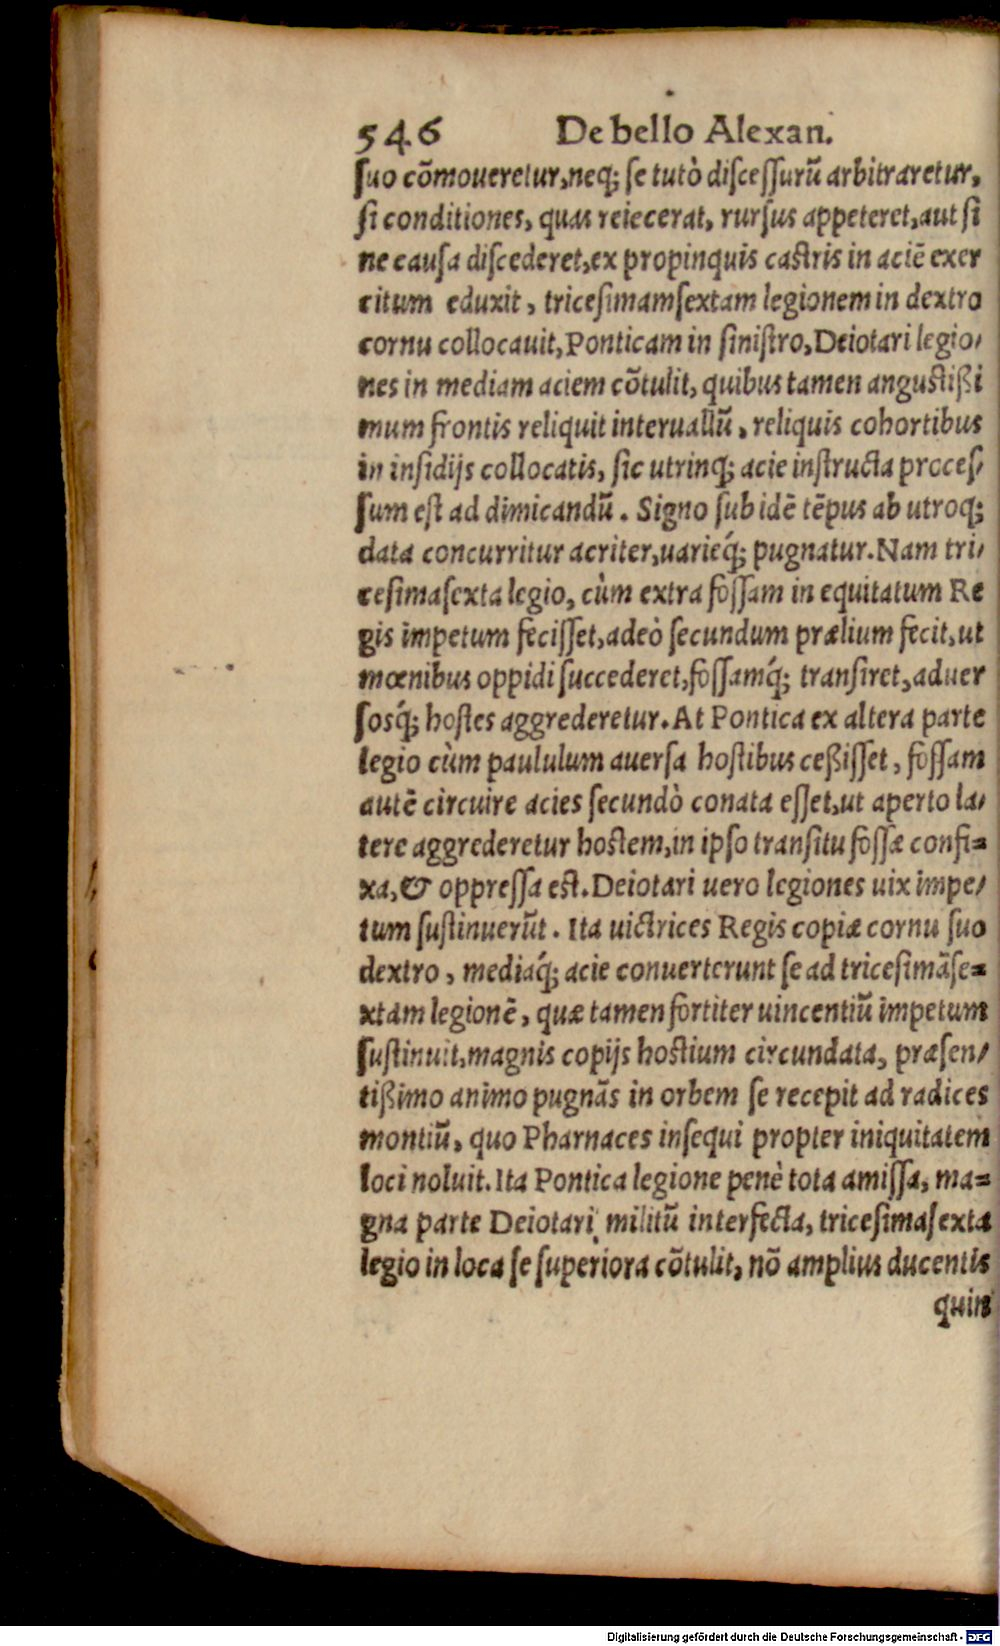 546 De bello Alexan.
ſuo cōmoueretur,neq; ſe tutò diſceſſurū arbitraretur,
ſi conditiones, quas reiecerat, rurſus appeteret,aut ſi
ne cauſa diſcederet,ex propinquis caſtris in aciē exer
citum eduxit, triceſimamſextam legionem in dextro
cornu collocauit,Ponticam in ſiniſtro,Deiotari legio⸗
nes in mediam aciem cōtulit, quibus tamen anguſtißi
mum frontis reliquit interuallū, reliquis cohortibus
in inſidijs collocatis, ſic utrinq; acie inſtructa proceſ⸗
ſum eſt ad dimicandū. Signo ſub idē tēpus ab utroq;
data concurritur acriter,uarieq́; pugnatur.Nam tri⸗
ceſimaſexta legio, cùm extra foſſam in equitatum Re
gis impetum feciſſet,adeò ſecundum prælium fecit,ut
mœnibus oppidi ſuccederet,foſſamq́; tranſiret,aduer
ſosq́; hoſtes aggrederetur.At Pontica ex altera parte
legio cùm paululum auerſa hoſtibus ceßiſſet, foſſam
autē circuire acies ſecundò conata eſſet,ut aperto la⸗
tere aggrederetur hoſtem,in ipſo tranſitu foſſæ confi⸗
xa,& oppreſſa eſt.Deiotari uero legiones uix impe⸗
tum ſuſtinuerūt. Ita uictrices Regis copiæ cornu ſuo
dextro, mediaq́; acie conuerterunt ſe ad triceſimāſe⸗
xtam legionē, quæ tamen fortiter uincentiū impetum
ſuſtinuit,magnis copijs hoſtium circundata, præſen⸗
tißimo animo pugnās in orbem ſe recepit ad radices
montiū, quo Pharnaces inſequi propter iniquitatem
loci noluit.Ita Pontica legione penè tota amiſſa, ma⸗
gna parte Deiotari militū interfecta, triceſimaſexta
legio in loca ſe ſuperiora cōtulit, nō amplius ducentis
quin
Digitalisierung gefördert durch die Deutsche Forschungsgemeinschaft - DFG